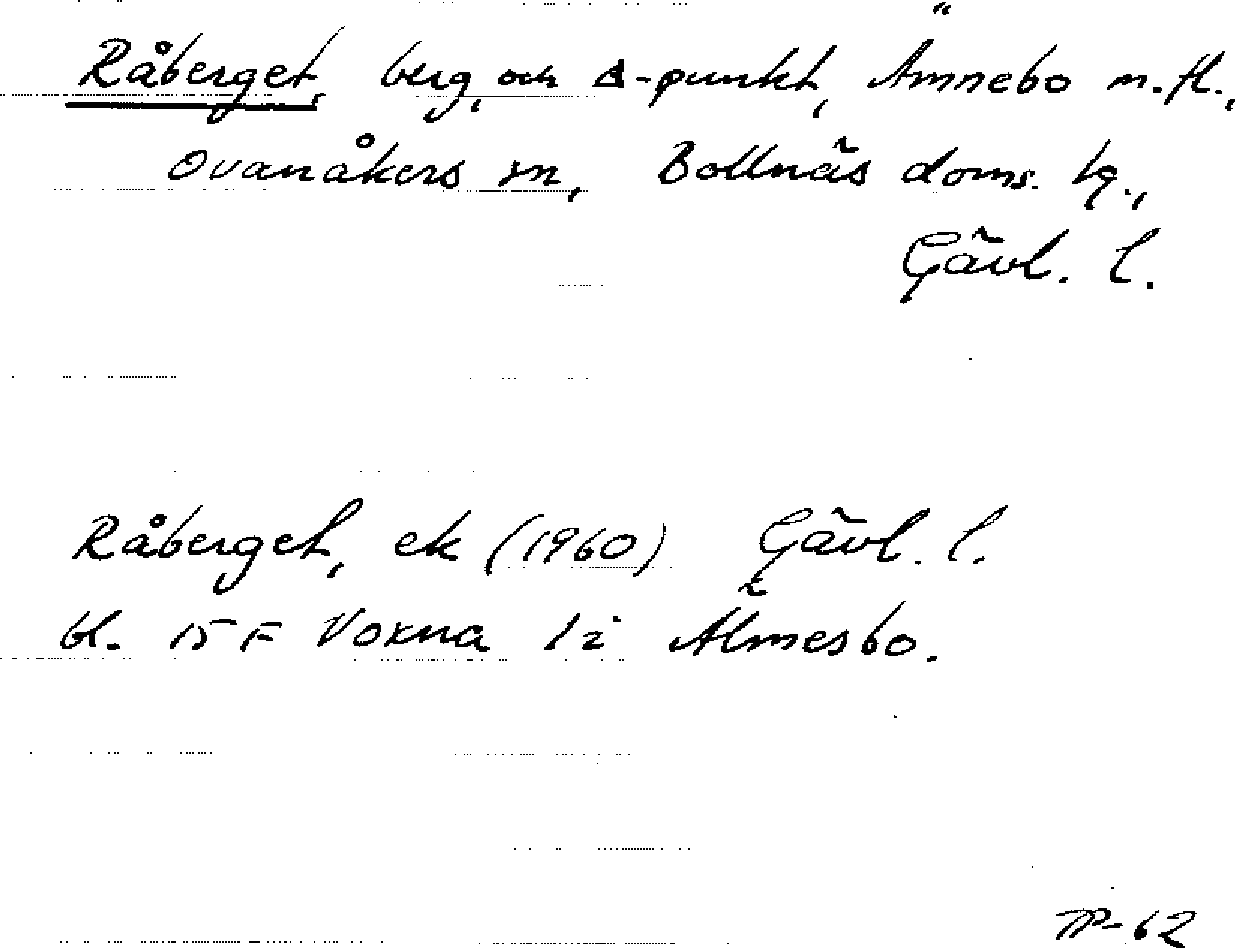 Råberget, berg, och Δ-punkt, Ämnebo m.fl.,
Ovanåkers sn, Bollnäs doms. tg.,
Gävl. l.
Råberget, ek (1960) Gävl. l.
bl. 15 F Voxna 1 i Älmesbo.
TP-62